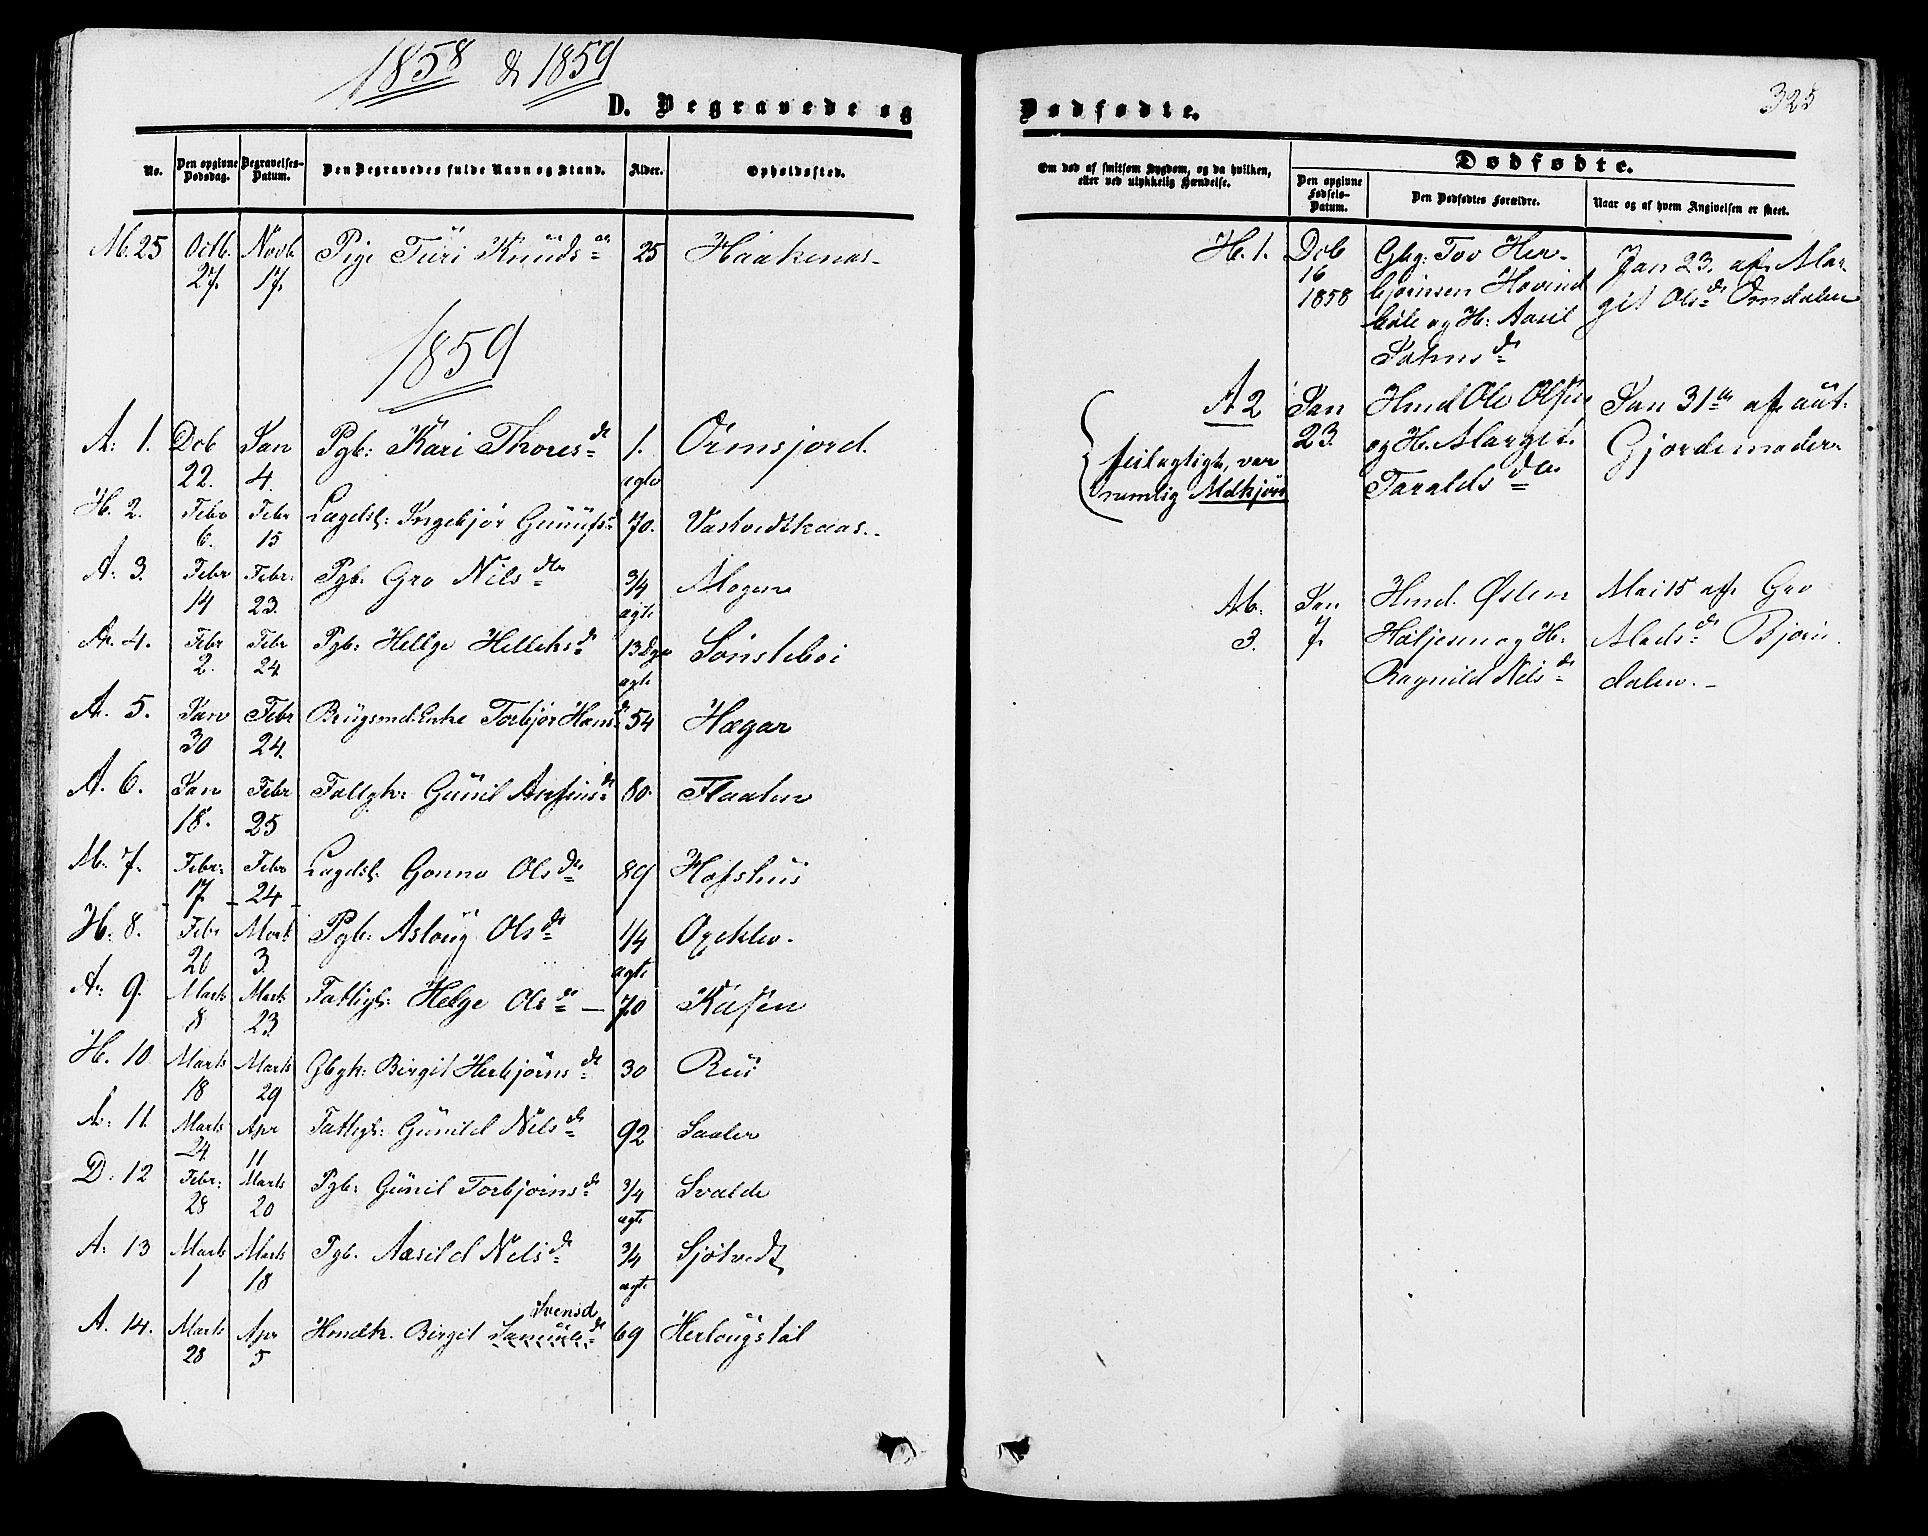 1858 & 1859
325
D. Begravede og Dødfødte.
No. | Den opgivne Dødsdag. | Begravelses-Datum. | Den Begravedes fulde Navn og Stand. | Alder. | Opholdssted.
M. 25 | Octb. 27. | Novb. 17. | Pige Turi Knüds | 25 | Haakenæs
1859
A: 1. | Dcb 22. | Jan 4. | Pgb: Kari Thores dr | 1. agte | Ormsjord.
H. 2. | Febr 6. | Febr 15 | Lægdsl: Ingebjør Günüfs d | 70. | Vastvedtkaas.
A: 3. | Febr 14 | Febr: 23. | Pgb. Gro Nils dtr | 3/4 agte | Mogen
A. 4. | Febr 2. | Febr 24 | Pgb: Helge Helleks d | 13 Dge agte | Sønstebøi
A. 5. | Jan 30 | Febr 24. | Brügsmd:Enke Torbjør Hans d | 54 | Hægar
A. 6. | Jan 18. | Febr 25 | Fattgk: Günil dr | 80. | Flaaten
M. 7. | Febr: 17. | Febr 24 | Lægdsl. Gonno Ols dtr | 89 | Hofshüs
H: 8. | Febr 20 | Marts 3. | Pgb: Asloüg Ols dr | 1/4 agte
A: 9. | Marts 8 | Marts 23 | Fattigk: Helge Ols dr | 70 | Kåsen
H. 10 | Marts 18 | Marts 29 | Gbgk: Birgit Herbjørns dr | 30 | Rüi
A: 11. | Marts 24. | Apr 11 | Fattigk: Günild Nils dr | 92 | Saaler
D. 12 | Febr: 28 | Marts 20 | Pgb: Günil Torbjørns dr | 3/4 agte | Svalde
A: 13 | Marts 1 | Marts 18 | Pgb. Aasild Nils dr | 3/4 agte | Sjøtvedt
A. 14. | Marts 28 | Apr 5 | Hmdk. Birgit Svensd | 69 | Herlougstøl
Om død af smitsom Sygdom, og da hvilken, eller ved ulykkelig Hændelse. | Dødfødte.
Den opgivne Fødsels-Datum. | Den Dødfødtes Forældre. | Naar og af hvem Angivelsen er skeet.
H. 1. | Dcb 16 1858 | Gbg: Tov Her-
bjørnsen Hovind
bøle og H: Aasil
Johns dr | Jan 23. af Mar-
git Ols dr Omdalen
A 2 | Jan 23. | Hmd Ole Olsen
og H. Marget
Taralds dtr | Jan 31 af aut.
Gjordemoder
feilagtigt, var
nemlig
M. 3. | Jan 7. | Hmd. Østen
Høljesen og H:
Ragnild Nils dr | Mai 15 af Gro
Mads dr Bjørn
dalen.